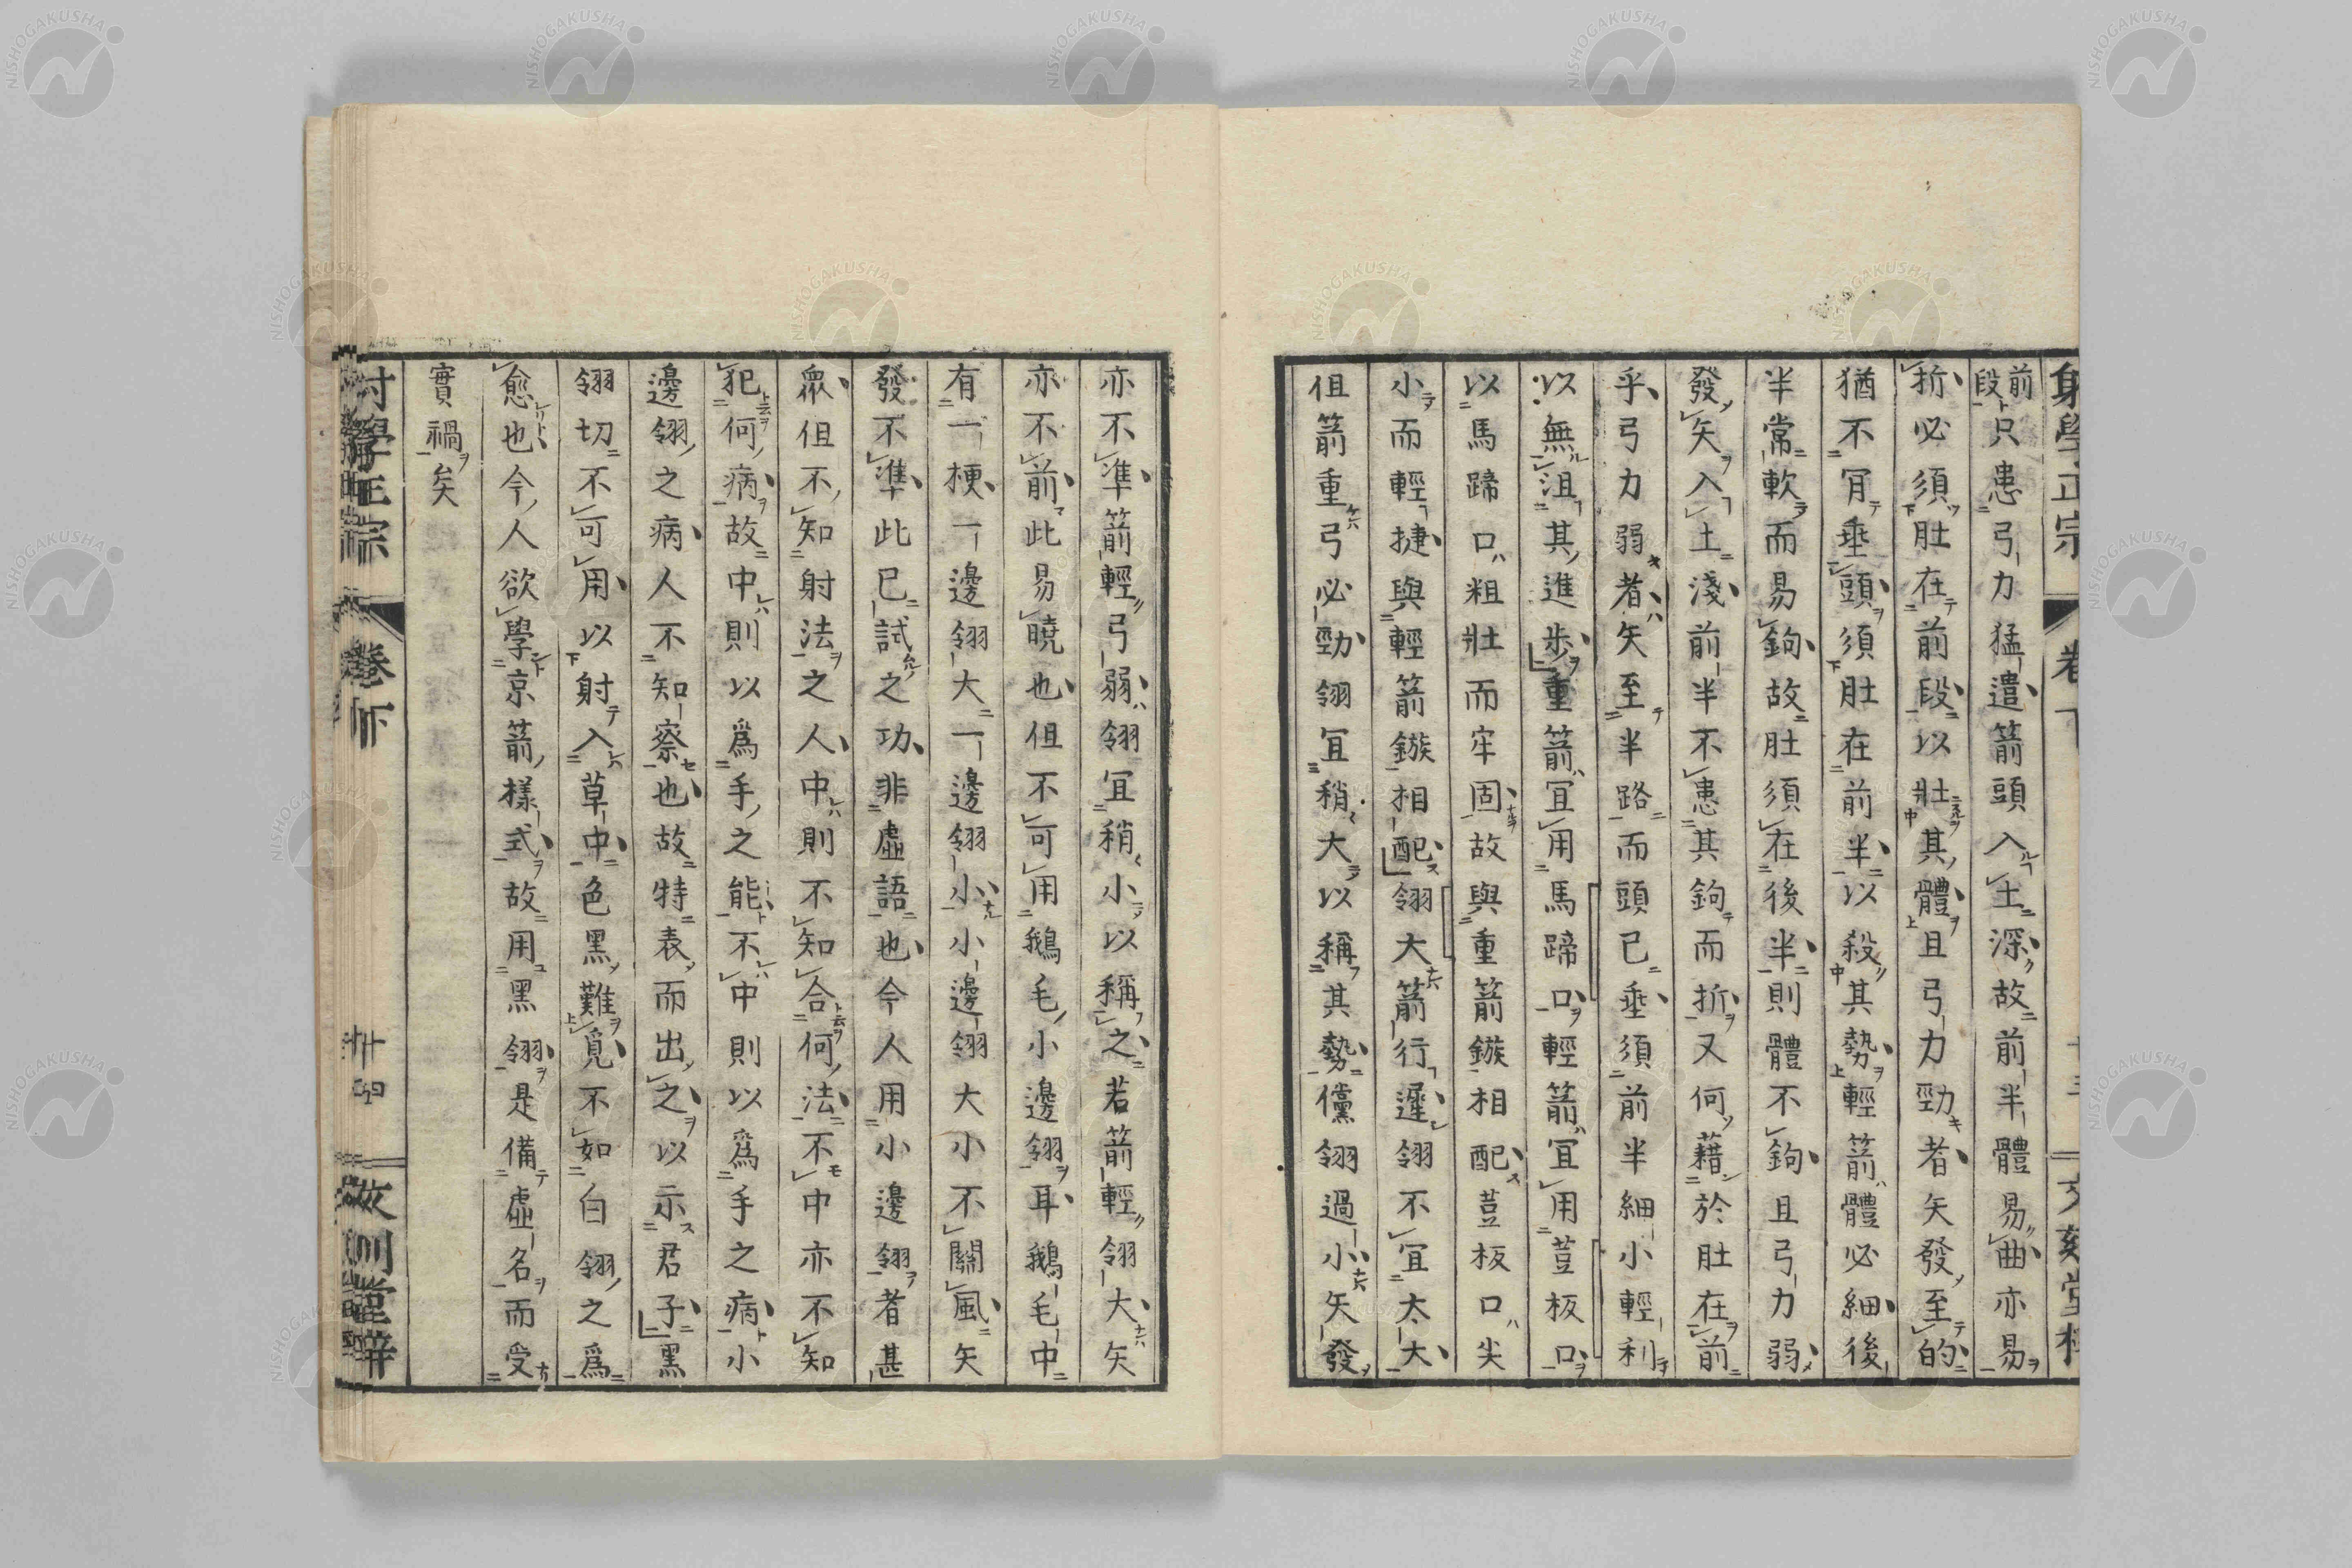 射學正宗 卷下 文刻堂
前段只患弓力猛遣箭頭入土深故前半體易曲亦易
折必須肚在前段以壯其體且弓力勁者矢發至的
猶不肎垂頭須肚在前半以殺其勢輕箭體必細後
半常軟而易鉤故肚須在後半則體不鉤且弓力弱
發矢入土淺前半不患其鉤而折又何藉於肚在前
乎弓力弱者矢至半路而頭已垂須前半細小輕利
以無沮其進步重箭冝用馬蹄口輕箭冝用荳板口
以馬蹄口粗壯而牢固故與重箭鏃相配荳板口尖
小而輕捷與輕箭鏃相配翎大箭行遲翎不冝太大
但箭重弓必勁翎冝稍大以稱其勢儻翎過小矢發
亦不準箭輕弓弱翎冝稍小以稱之若箭輕翎大矢
亦不前此易曉也但不可用鵝毛小邊翎耳鵝毛中
有一梗一邊翎大一邊翎小小邊翎大小不關風矢
發不準此已試之功非虛語也今人用小邊翎者甚
眾但不知射法之人中則不知合何法不中亦不知
犯何病故中則以爲手之能不中則以爲手之病小
邊翎之病人不知察也故特表而出之以示君子黑
翎切不可用以射入草中色黑難覓不如白翎之爲
愈也今人欲學京箭樣式故用黑翎是備虛名而受
實禍矣
射學正宗 卷下 十四